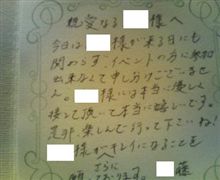 親愛なる 様へ
今日は 様が来る日にも
関わらず、イベントの方に参加
出来なくて申し分けございませ
ん。 様には本当に優しく
接して頂いて本当に嬉しいです。
是非、楽しんで行って下さいね!
様がキレイになることを
さらに
願っております。 藤